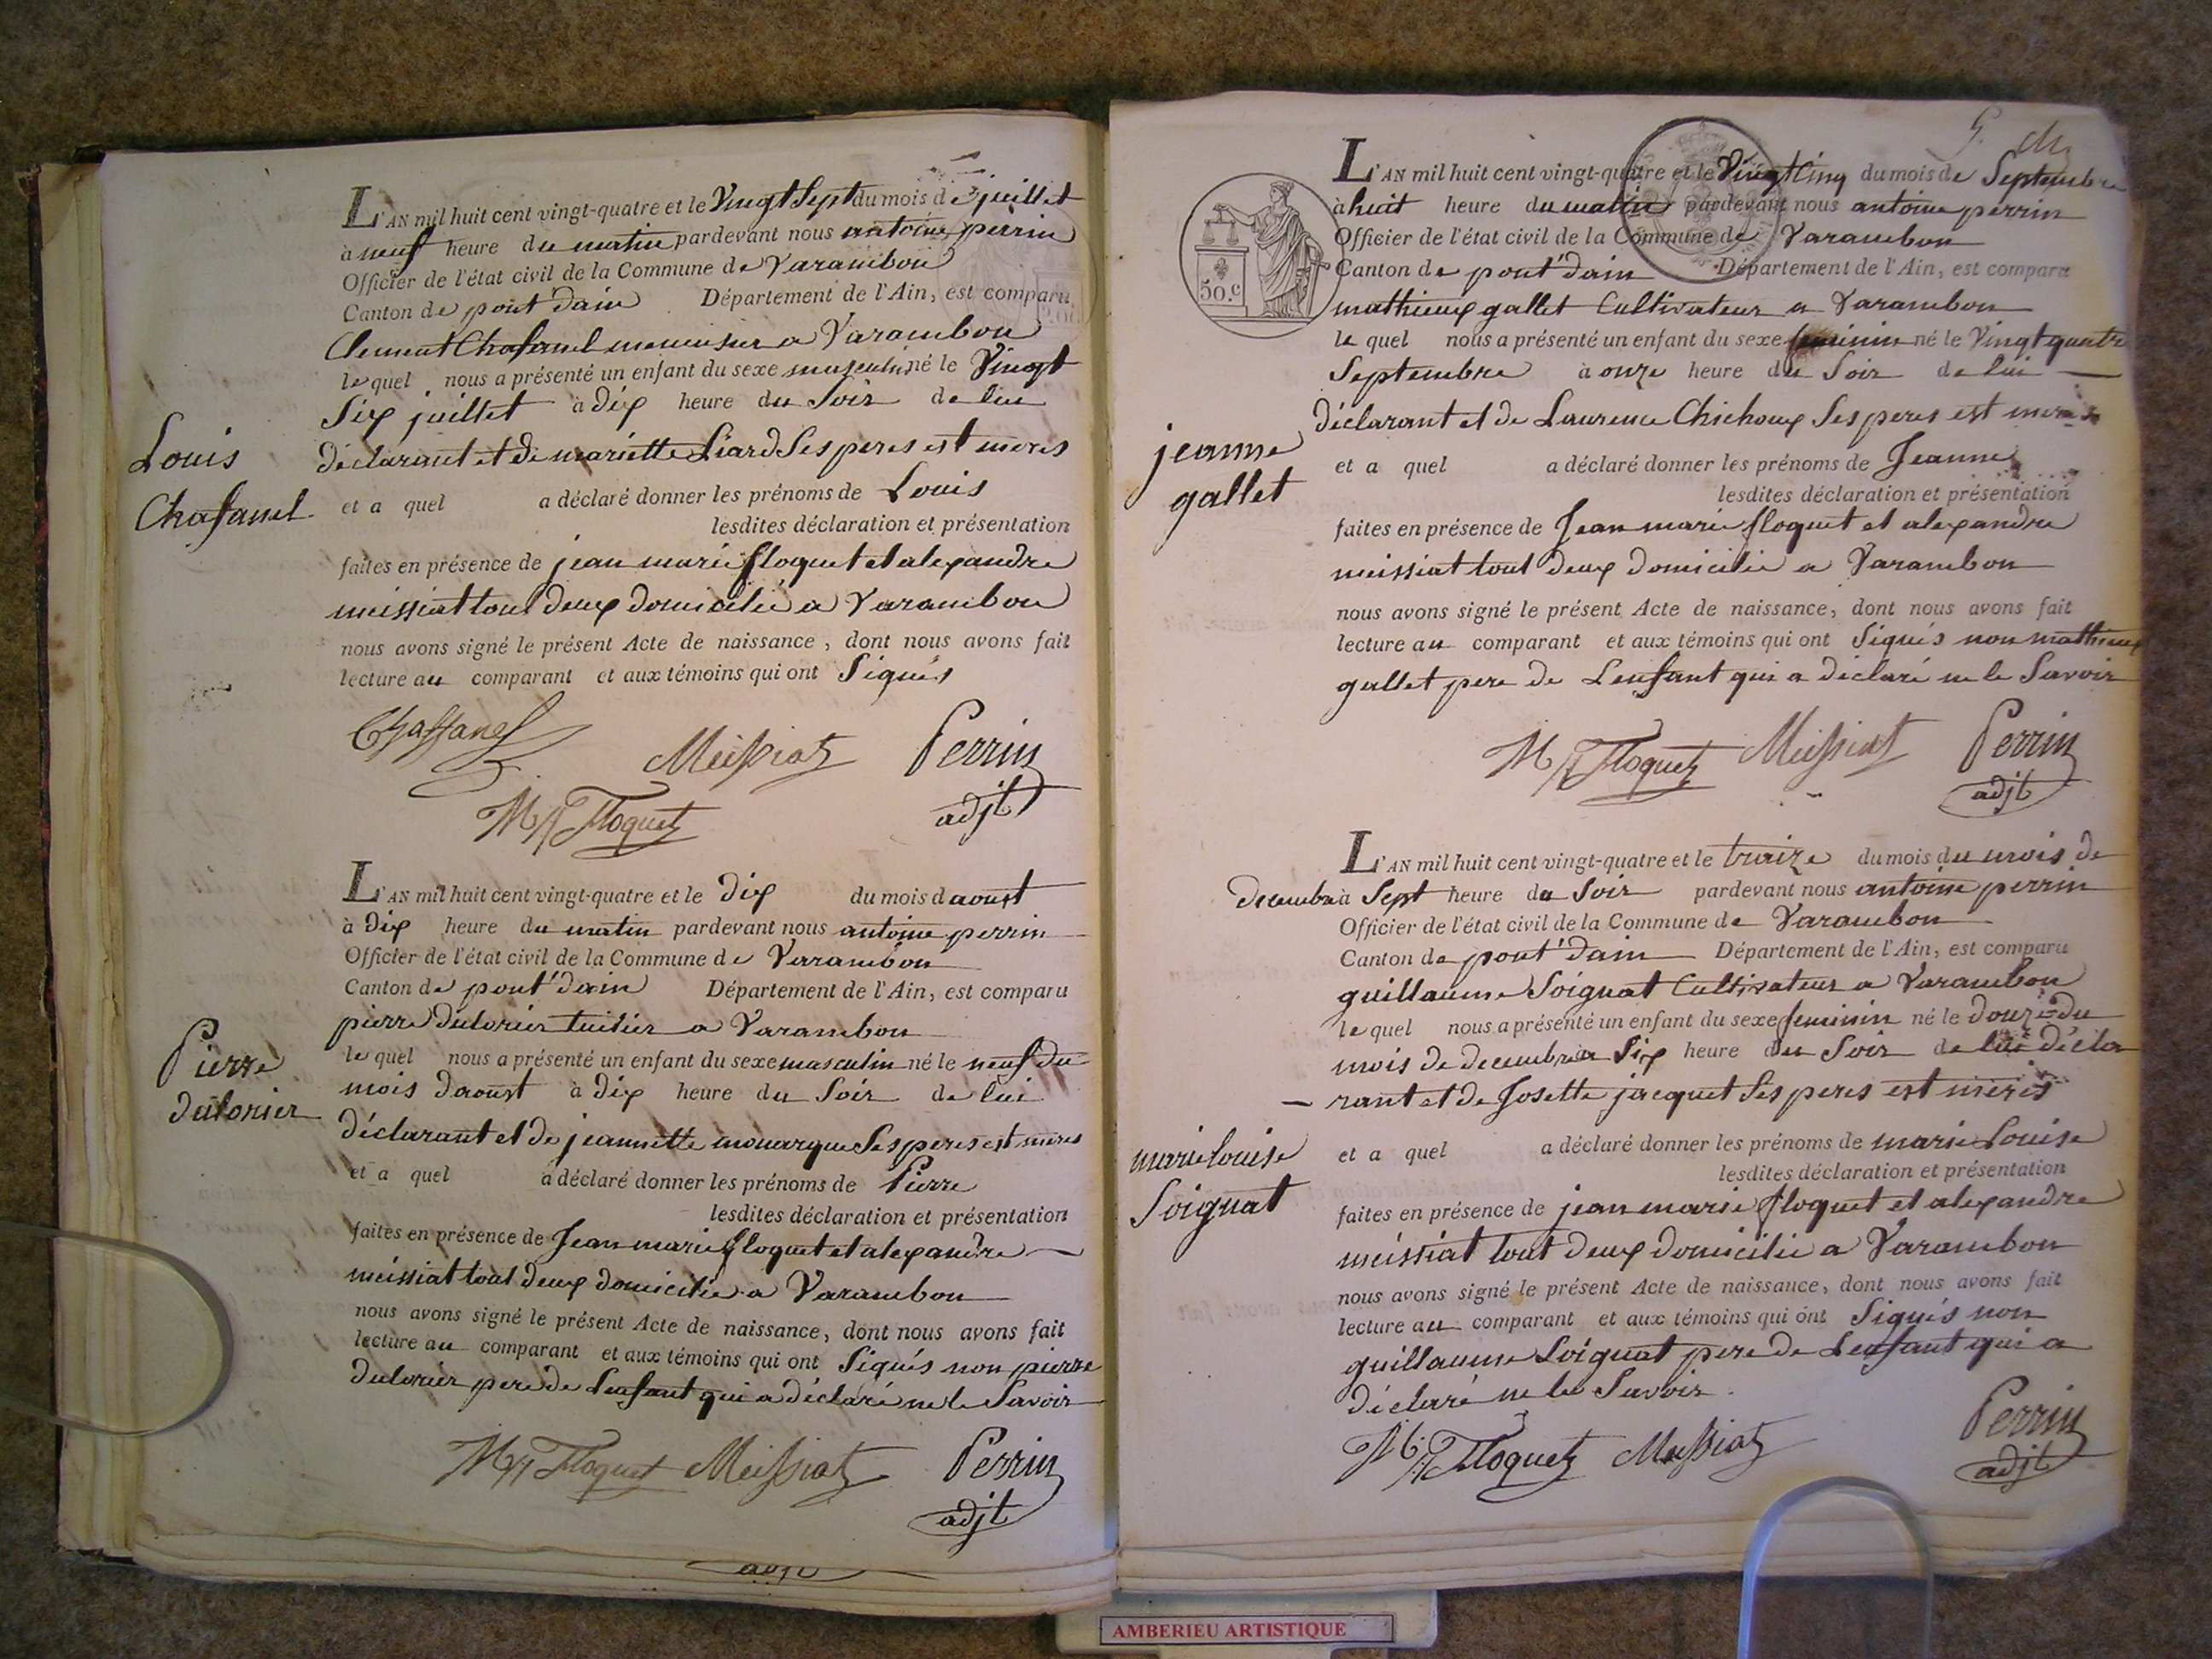 L'AN mil huit cent vingt-quatre et le Vingt Sept du mois de juillet
à neuf heure du matin pardevant nous antoine perrin
Officier de l'état civil de la Commune de Varambon
Canton de pont d'ain Département de l'Ain, est comparu
Clement Chafanel menuisier a Varambon
le quel nous a présenté un enfant du sexe masculin né le Vingt
Six juillet à dix heure du Soir de lui
déclarant et de mariette Liard Ses peres est meres
et a quel a déclaré donner les prénoms de Louis
lesdites déclaration et présentation
faites en présence de jean marie floquet et alexandre
meissiat tout deux domicilié a Varambon
nous avons signé le présent Acte de naissance, dont nous avons fait
lecture au comparant et aux témoins qui ont Signés
Louis
Chafanel
Chaffanel Meissiat Perrin
M Floquet adjt
L'AN mil huit cent vingt-quatre et le dix du mois daoust
à dix heure du matin pardevant nous antoine perrin
Officier de l'état civil de la Commune de Varambon
Canton de pont d'ain Département de l'Ain, est comparu
pierre dulorier tuilier a Varambon
le quel nous a présenté un enfant du sexe masculin né le neuf du
mois daoust à dix heure du Soir de lui
déclarant et de jeannette monarque Ses peres est meres
et a quel a déclaré donner les prénoms de Pierre
lesdites déclaration et présentation
faites en présence de Jean marie floquet et alexandre
meissiat tout deux domicilié a Varambon
nous avons signé le présent Acte de naissance, dont nous avons fait
lecture au comparant et aux témoins qui ont Signés non pierre
dulorier pere de Lenfant qui a déclaré ne le Savoir
Pierre
dulorier
M Floquet Meissiat Perrin
adjt
L'AN mil huit cent vingt-quatre et le Vingt Cinq du mois de Septembre
à huit heure du matin pardevant nous antoine perrin
Officier de l'état civil de la Commune de Varambon
Canton de pont d'ain Département de l'Ain, est comparu
50.c
mathieux gallet Cultivateur a Varambon
le quel nous a présenté un enfant du sexe feminin né le Vingt quatre
Septembre à onze heure du Soir de lui
déclarant et de Laurence Chichoux Ses peres est meres
et a quel a déclaré donner les prénoms de Jeanne
lesdites déclaration et présentation
faites en présence de Jean marie floquet et alexandre
meissiat tout deux domicilié a Varambon
nous avons signé le présent Acte de naissance, dont nous avons fait
lecture au comparant et aux témoins qui ont Signés non mathieux
gallet pere de Lenfant qui a déclaré ne le Savoir
jeanne
gallet
M Floquet Meissiat Perrin
adjt
L'AN mil huit cent vingt-quatre et le treize du mois du mois de
decembre à Sept heure du Soir pardevant nous antoine perrin
Officier de l'état civil de la Commune de Varambon
Canton de pont d'ain Département de l'Ain, est comparu
guillaume Soignat Cultivateur a Varambon
le quel nous a présenté un enfant du sexe feminin né le douze du
mois de decembre a Six heure du Soir de lui décla
rant et de Josette jacquet Ses peres est meres
et a quel a déclaré donner les prénoms de marie Louise
lesdites déclaration et présentation
faites en présence de jean marie floquet et alexandre
meissiat tout deux domicilié a Varambon
nous avons signé le présent Acte de naissance, dont nous avons fait
lecture au comparant et aux témoins qui ont Signés non
guillaume Soignat pere de Lenfant qui a
déclaré ne le Savoir.
marie louise
Soignat
M Floquet Meissiat Perrin
adjt
AMBERIEU ARTISTIQUE